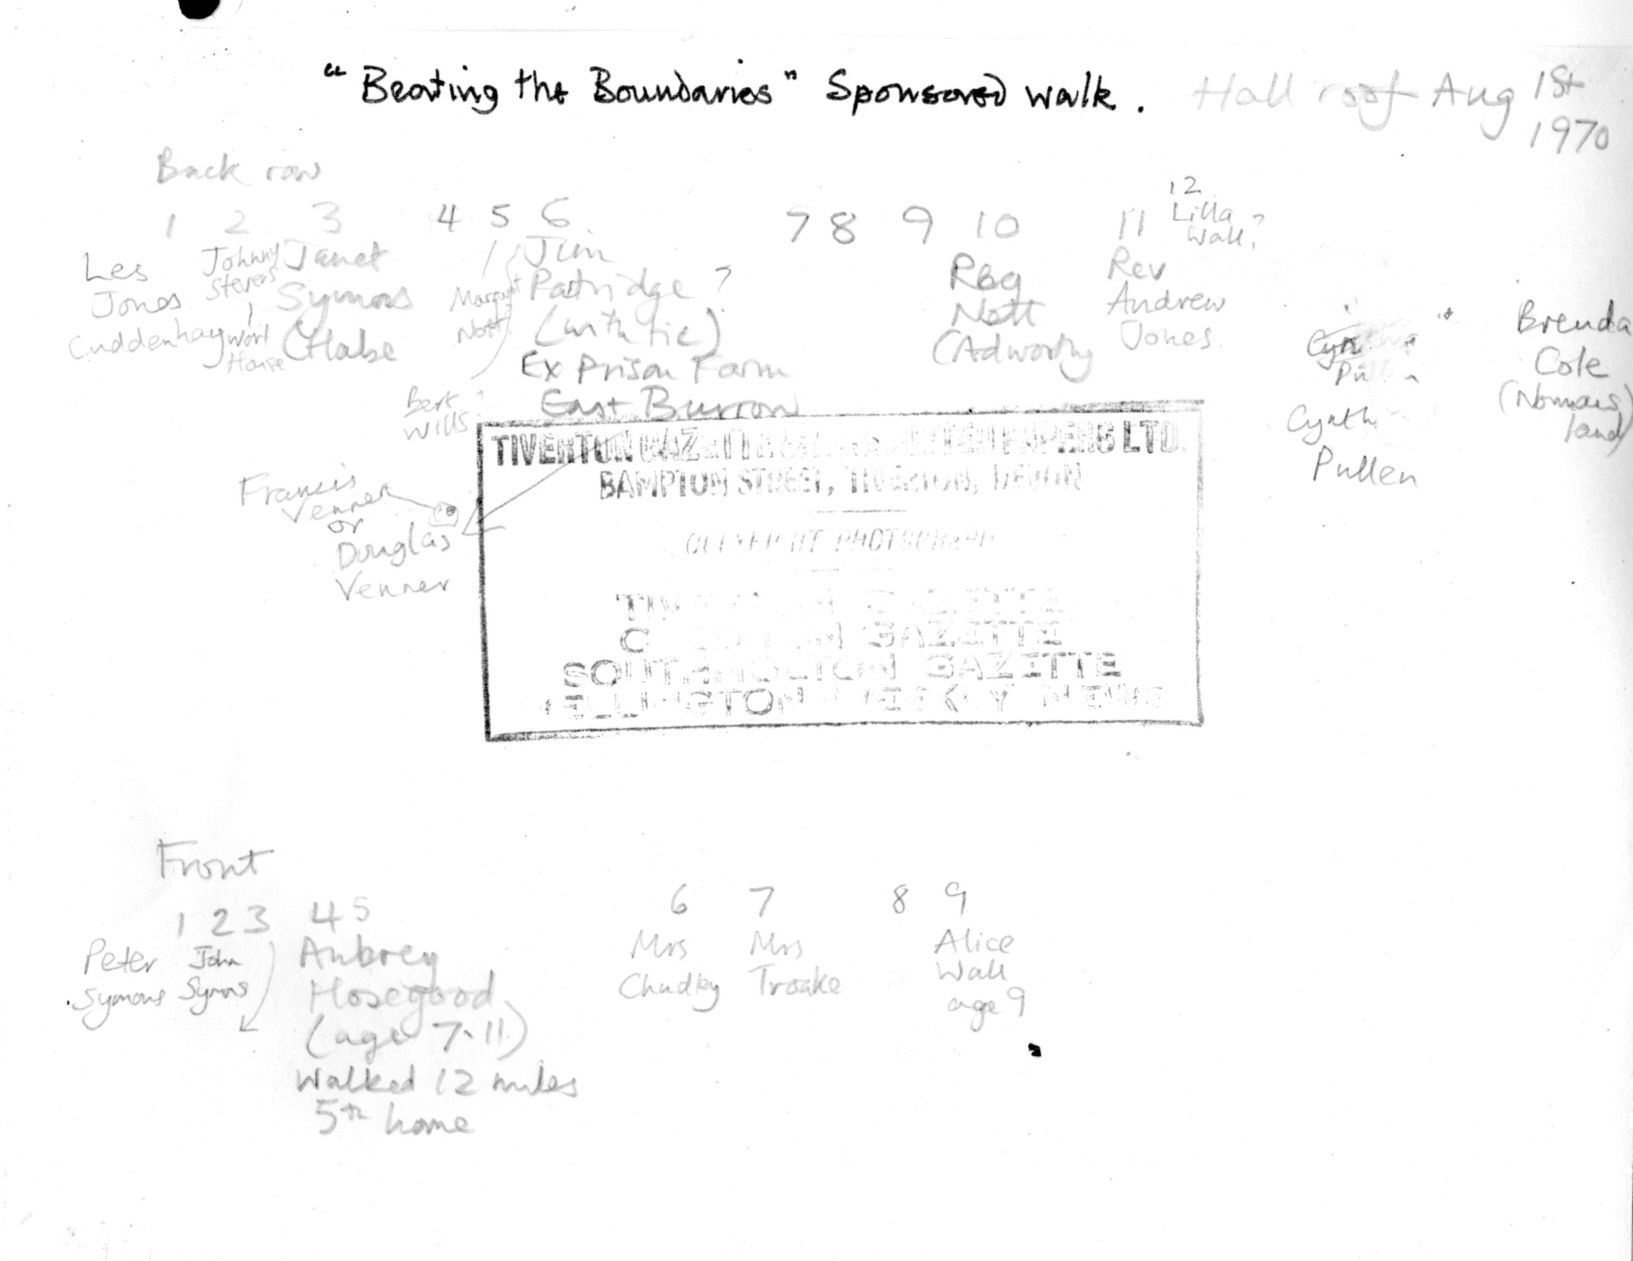 "Beating the Boundaries" Sponsored walk. Hall roof Aug 1st
1970
Back row
1 2 3 4 5 6 7 8 9 10 11 12
Les
Jones
Cuddenhay
Johnny
Stevens
Work
House
Janet
Symons
Margaret
Nott
Bert ?
Wills
Jim
Patridge ?
(with tie)
Ex Prison Farm
East Burrow
Reg
Nott
(Adworthy
Rev
Andrew
Jones
Lilla
Wall?
Cynth
Pullen
Brenda
Cole
(Nomans
land)
Francis
Venner
or
Douglas
Venner
TIVERTON GAZETTE PAPERS LTD.
BAMPTON STREET, TIVERTON, DEVON
PHOTOGRAPH
TIVERTON GAZETTE
GAZETTE
SOUTH MOLTON GAZETTE
WELLINGTON WEEKLY NEWS
Front
1 2 3 4 5 6 7 8 9
Peter
Symons
John
Symns
Aubrey
Hosegood
(age 7.11)
Walked 12 miles
5th home
Mrs
Chudley
Mrs
Troake
Alice
Wall
age 9